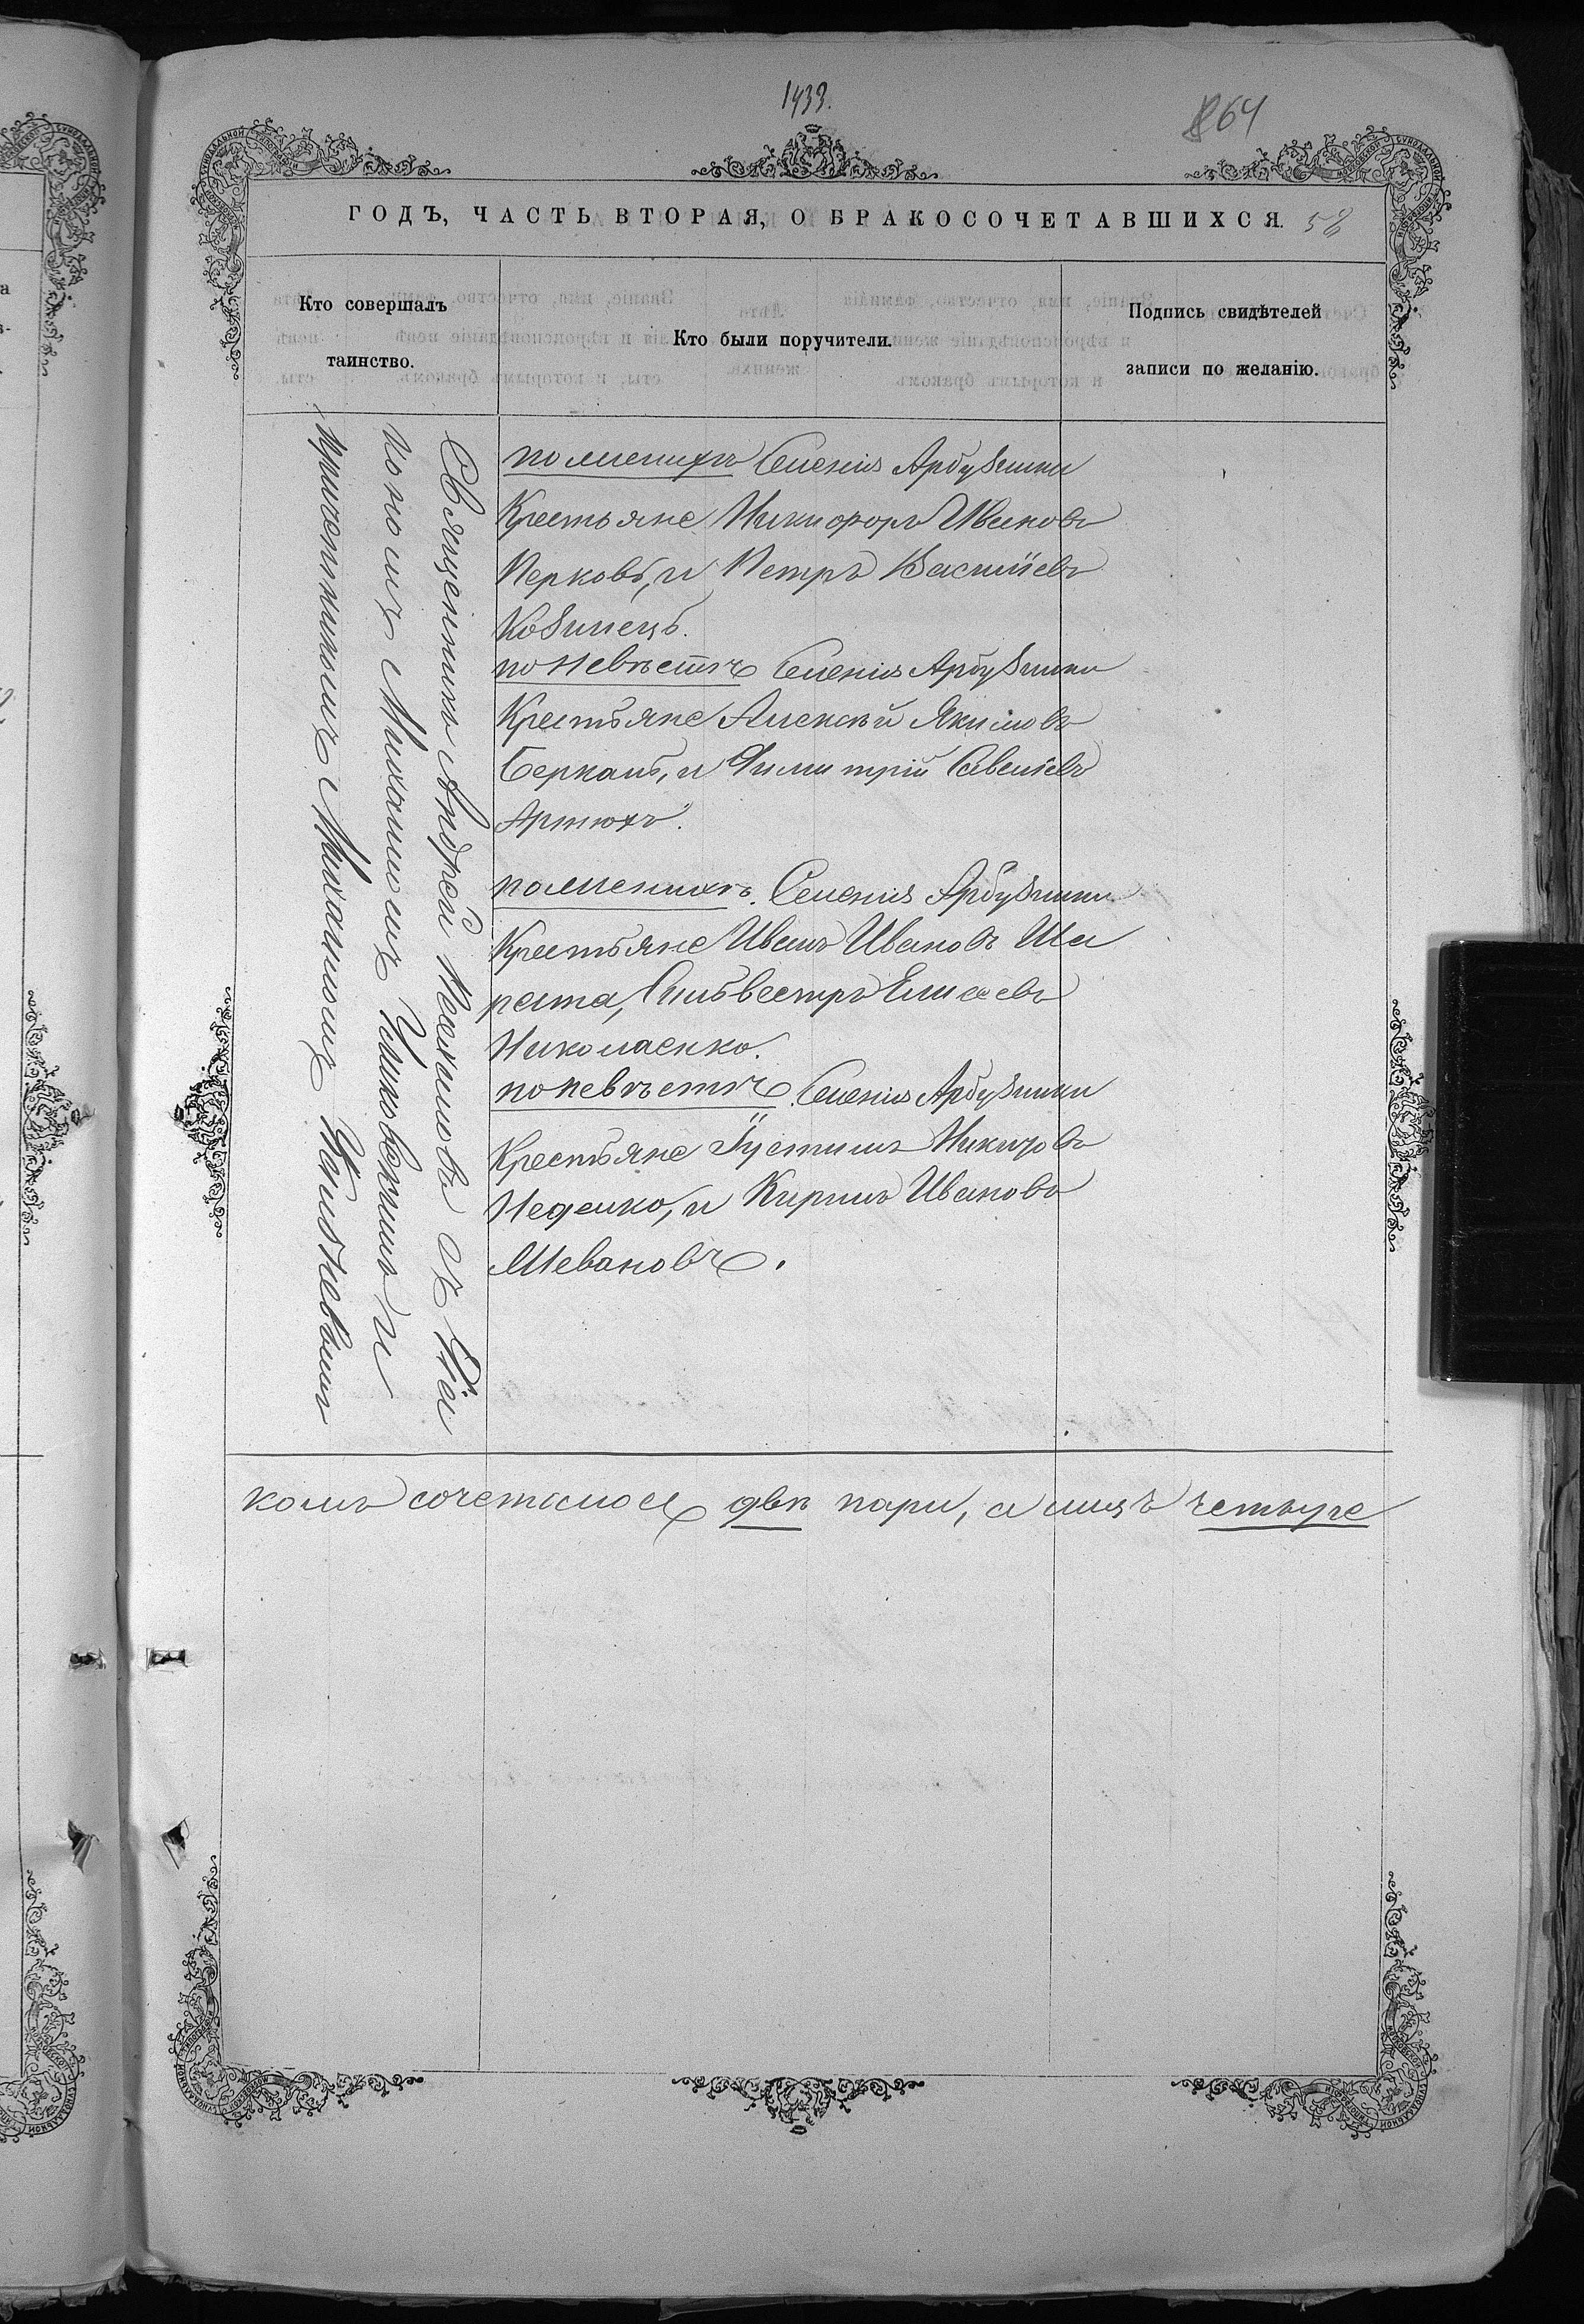 1433.
864
ГОДЪ, ЧАСТЬ ВТОРАЯ, О БРАКОСОЧЕТАВШИХСЯ. 58
Кто совершалъ
таинство.
Кто были поручители.
Подпись свидѣтелей
записи по желанію.
Священникъ Андрей съ Діа
кономъ Михаиломъ и
причетникомъ Михаиломъ
по женихѣ Селенія Арбузинки
Крестьяне Никифоръ Ивановъ
Перковъ, и Петръ Василіевъ
Козинецъ.
по невѣстѣ Селенія Арбузинки
Крестьяне Алексѣй Якимовъ
Беркань, и Димитрій Савеліевъ
Артюхъ.
по женихѣ. Селенія Арбузинки
Крестьяне Иванъ Ивановъ Ша
рата, Сильвестръ Елисеевъ
Николаенко.
по невѣстѣ. Селенія Арбузинки
Крестьяне Іустинъ Никитовъ
и Кирилъ Ивановъ
комъ сочеталось двѣ пари, а лицъ четыре